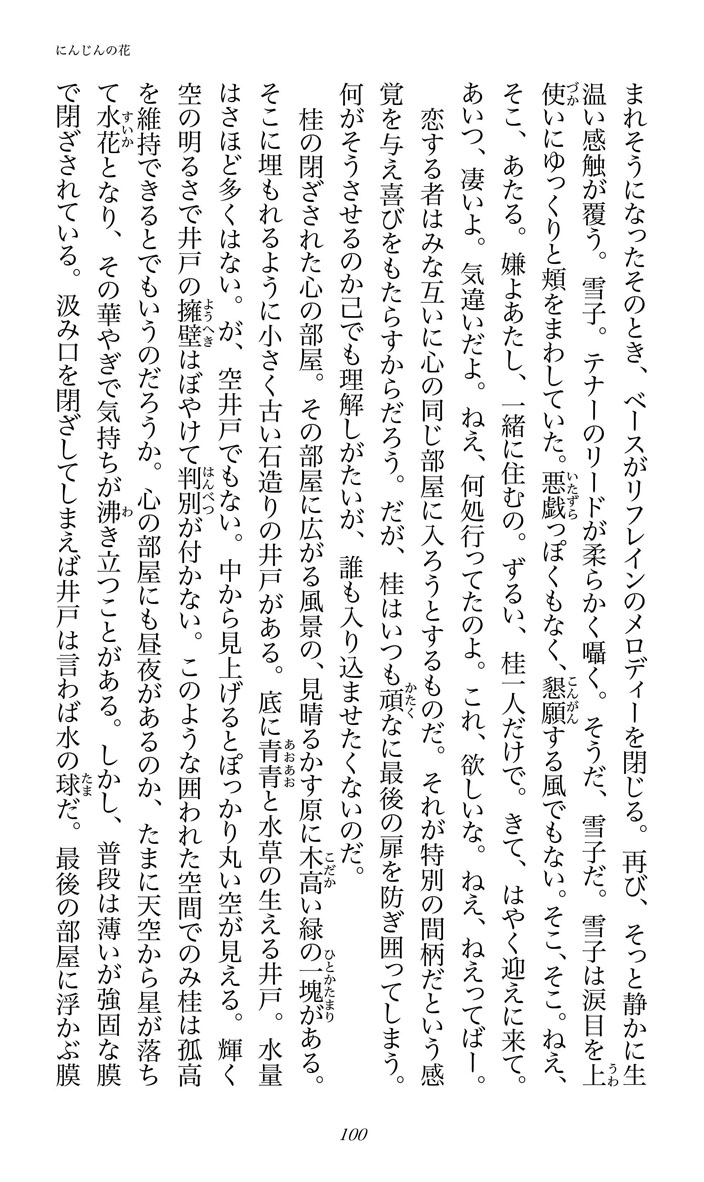 にんじんの花
まれそうになったそのとき、ベースがリフレインのメロディーを閉じる。再び、そっと静かに生
温い感触が覆う。雪子。テナーのリードが柔らかく囁く。そうだ、雪子だ。雪子は涙目を上
使いにゆっくりと頬をまわしていた。悪戯っぽくもなく、懇願する風でもない。そこ、そこ。ねえ、
そこ、あたる。嫌よあたし、一緒に住むの。ずるい、桂一人だけで。きて、はやく迎えに来て。
あいつ、凄いよ。気違いだよ。ねえ、何処行ってたのよ。これ、欲しいな。ねえ、ねえってばー。
恋する者はみな互いに心の同じ部屋に入ろうとするものだ。それが特別の間柄だという感
覚を与え喜びをもたらすからだろう。だが、桂はいつも頑なに最後の扉を防ぎ囲ってしまう。
何がそうさせるのか己でも理解しがたいが、誰も入り込ませたくないのだ。
桂の閉ざされた心の部屋。その部屋に広がる風景の、見晴るかす原に木高い緑の一塊がある。
そこに埋もれるように小さく古い石造りの井戸がある。底に青青と水草の生える井戸。水量
はさほど多くはない。が、空井戸でもない。中から見上げるとぽっかり丸い空が見える。輝く
空の明るさで井戸の擁壁はぼやけて判別が付かない。このような囲われた空間でのみ桂は孤高
を維持できるとでもいうのだろうか。心の部屋にも昼夜があるのか、たまに天空から星が落ち
て水花となり、その華やぎで気持ちが沸き立つことがある。しかし、普段は薄いが強固な膜
で閉ざされている。汲み口を閉ざしてしまえば井戸は言わば水の球だ。最後の部屋に浮かぶ膜
100